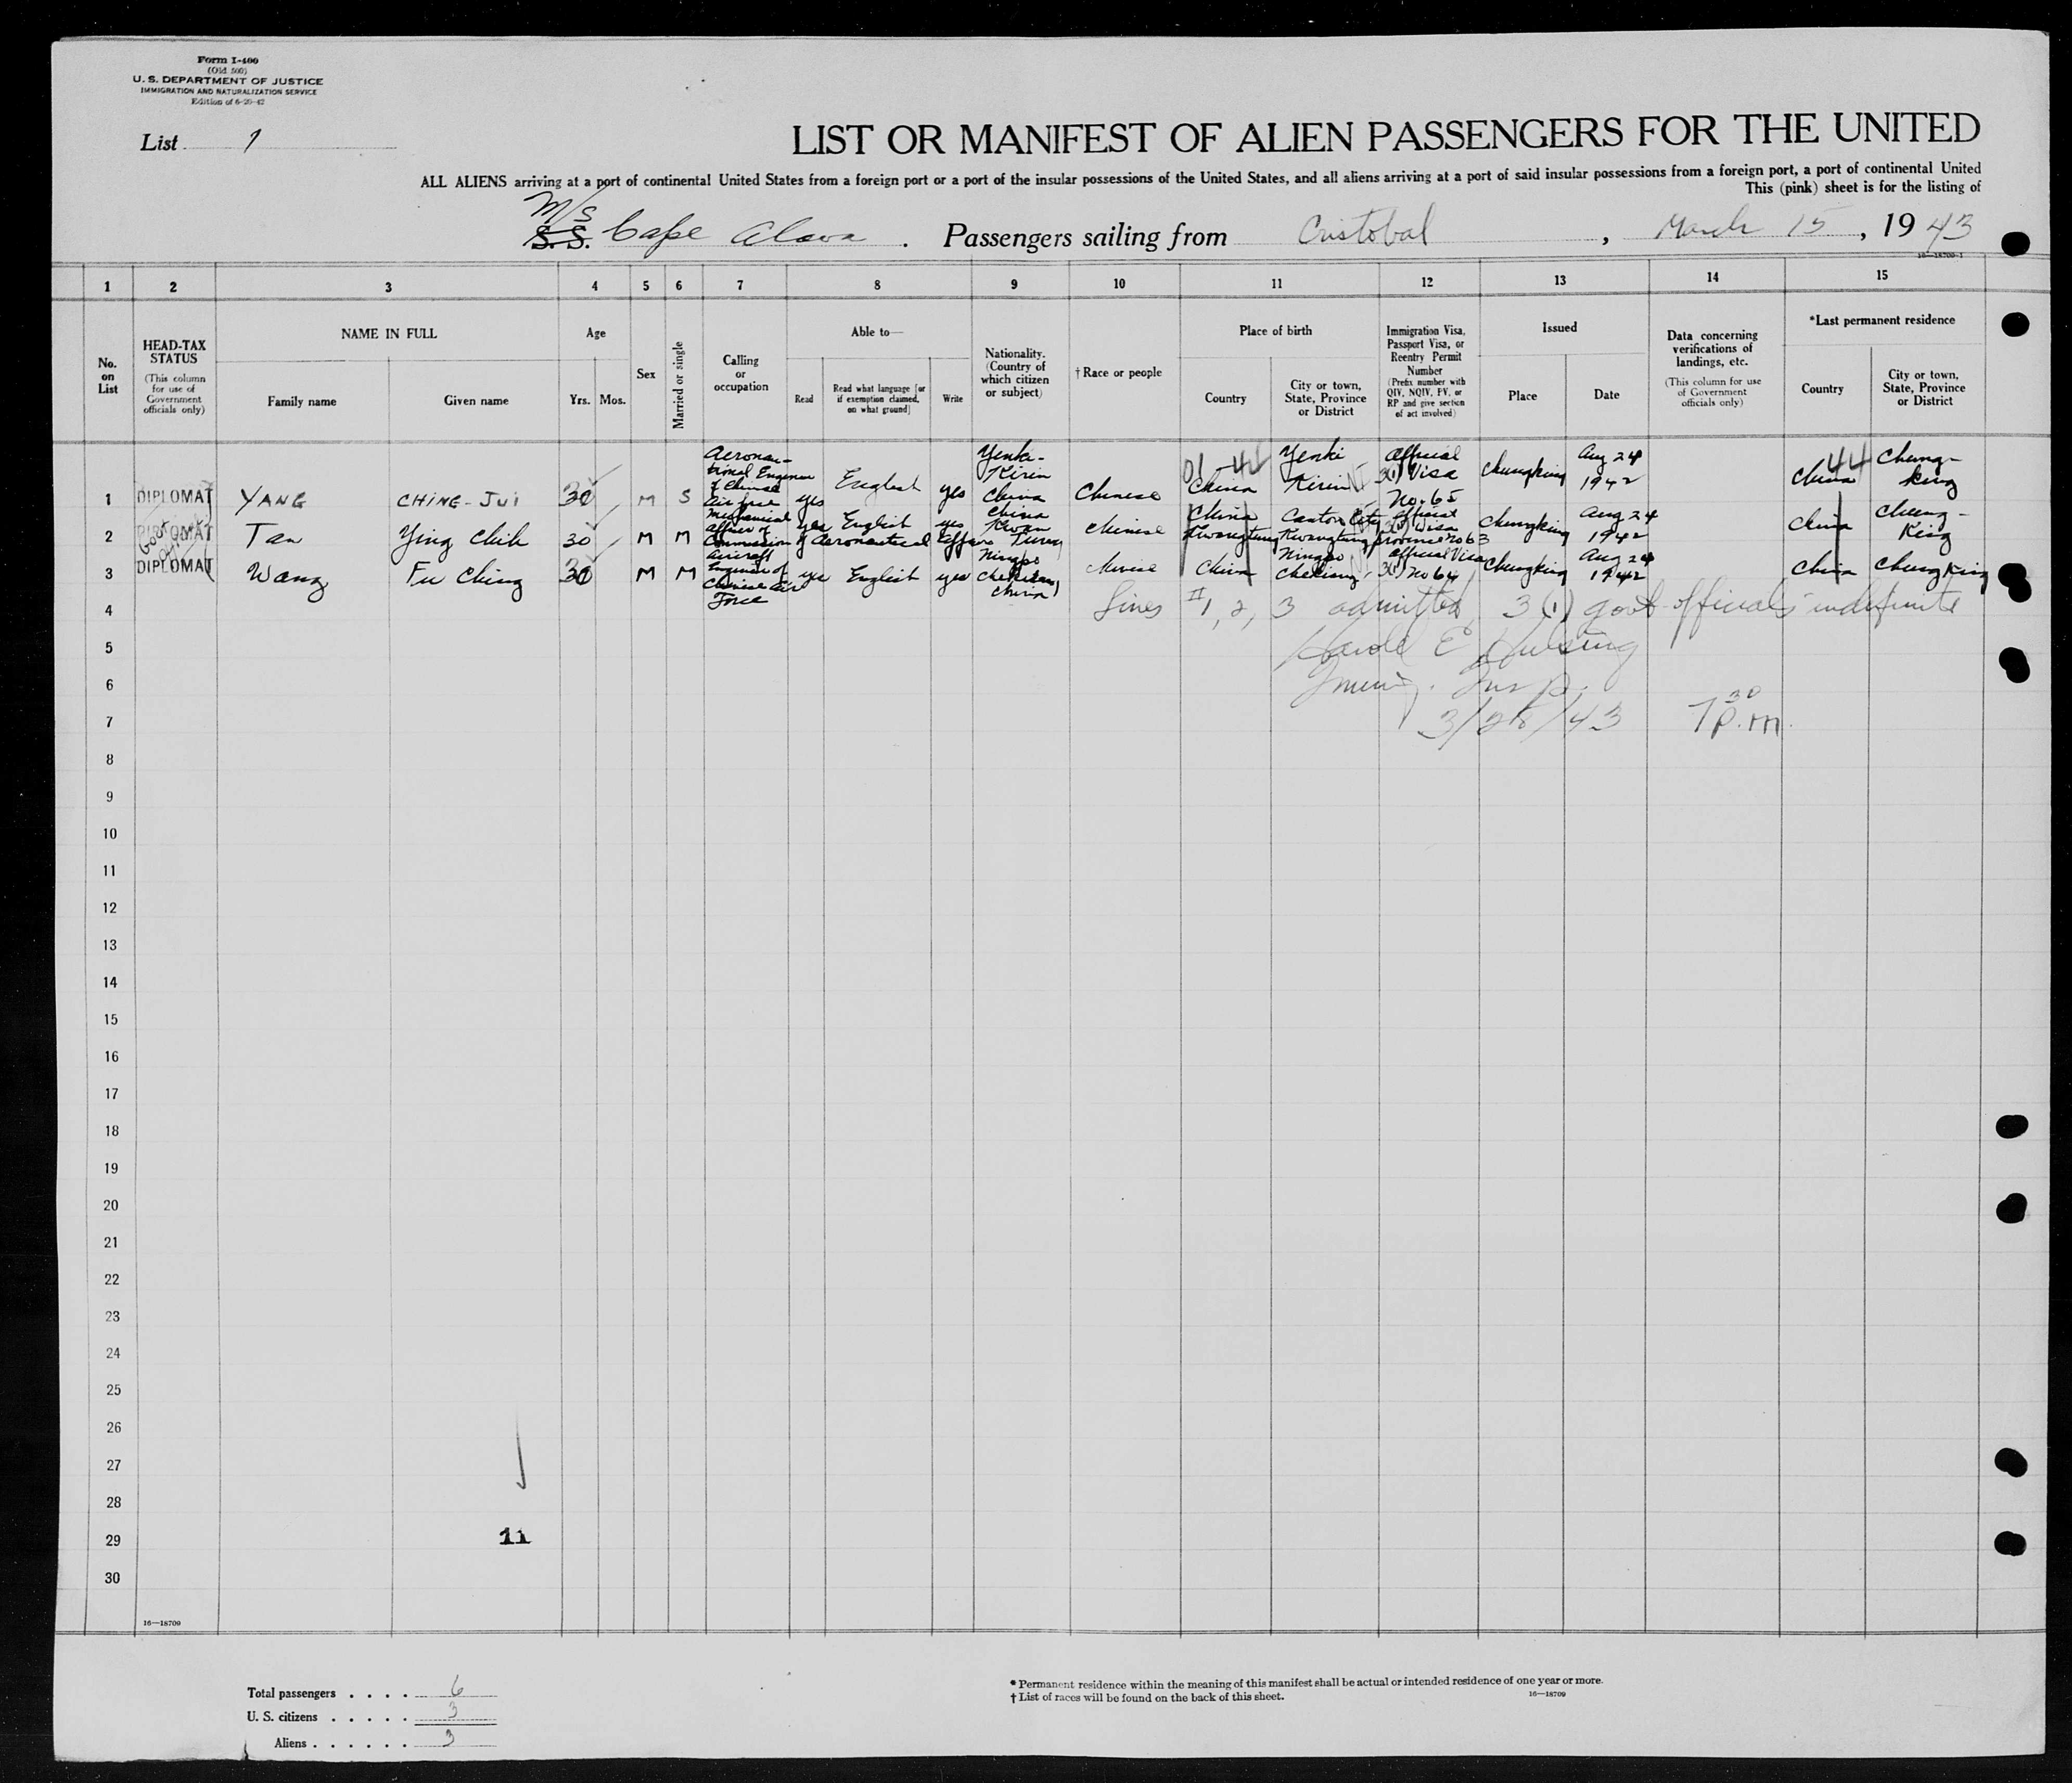 Form I-400
(Old 500)
U. S. DEPARTMENT OF JUSTICE
IMMIGRATION AND NATURALIZATION SERVICE
Edition of 6-20-42
List 1
LIST OR MANIFEST OF ALIEN PASSENGERS FOR THE UNITED
ALL ALIENS arriving at a port of continental United States from a foreign port or a port of the insular possessions of the United States, and all aliens arriving at a port of said insular possessions from a foreign port, a port of continental United
This (pink) sheet is for the listing of
M/S
S.S. Cape Alava . Passengers sailing from Cristobal , March 15 , 1943
16—18709-1
1 2 3 4 5 6 7 8 9 10 11 12 13 14 15
No. on List
HEAD-TAX STATUS
(This column for use of Government officials only)
NAME IN FULL
Family name
Given name
Age
Yrs. Mos.
Sex
Married or single
Calling or occupation
Able to—
Read
Read what language [or if exemption claimed, on what ground]
Write
Nationality. (Country of which citizen or subject)
† Race or people
Place of birth
Country
City or town, State, Province or District
Immigration Visa, Passport Visa, or Reentry Permit Number
(Prefix number with QIV, NQIV, PV, or RP and give section of act involved)
Issued
Place
Date
Data concerning verifications of landings, etc.
(This column for use of Government officials only)
*Last permanent residence
Country
City or town, State, Province or District
1 DIPLOMAT YANG CHING-JUI 30 M S Aeronautional Engineer of Chinese Air force yes English yes Yenki-Kirin China Chinese China Yenki Kirin Official 3(1) Visa No. 65 Chungking Aug 24 1942 China Chung-king
01-44
44
2 DIPLOMAT Tan Ying Chih 30 M M Mechanical officer of Commission of Aeronautical Affairs yes English yes China Kwan Tung Chinese China Kwangtung Canton City Kwangtung province Official 3(1) Visa No 63 Chungking Aug 24 1942 China Chung-King
3 DIPLOMAT Wang Fu Ching 30 M M Aircraft Engineer of Chinese Air Force yes English yes Ningpo Chekiang China Chinese China Ningpo Chekiang Official Visa 3(1) No 64 Chungking Aug 24 1942 China Chungking
4 Lines 1, 2, 3 admitted 3(1) govt officials indefinite
5 Harold E. Hulsing
6 Immig. Insp.
7 3/28/43 7 30 p.m.
8
9
10
11
12
13
14
15
16
17
18
19
20
21
22
23
24
25
26
27
28
29 11
30
16—18709
Total passengers . . . . 6
U. S. citizens . . . . . 3
Aliens . . . . . . 3
* Permanent residence within the meaning of this manifest shall be actual or intended residence of one year or more.
† List of races will be found on the back of this sheet. 16—18709